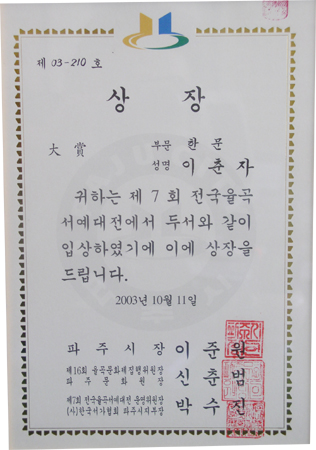 제 03-210 호
상 장
大賞 부문 한 문
성명 이 춘 자
귀하는 제 7 회 전국율곡
서예대전에서 두서와 같이
입상하였기에 이에 상장을
드립니다.
2003년 10월 11일
파 주 시 장 이 준 원
제16회 율곡문화제집행위원장
파 주 문 화 원 장 신 춘 범
제7회 전국율곡서예대전 운영위원장
(사)한국서가협회 파주시지부장 박 수 진